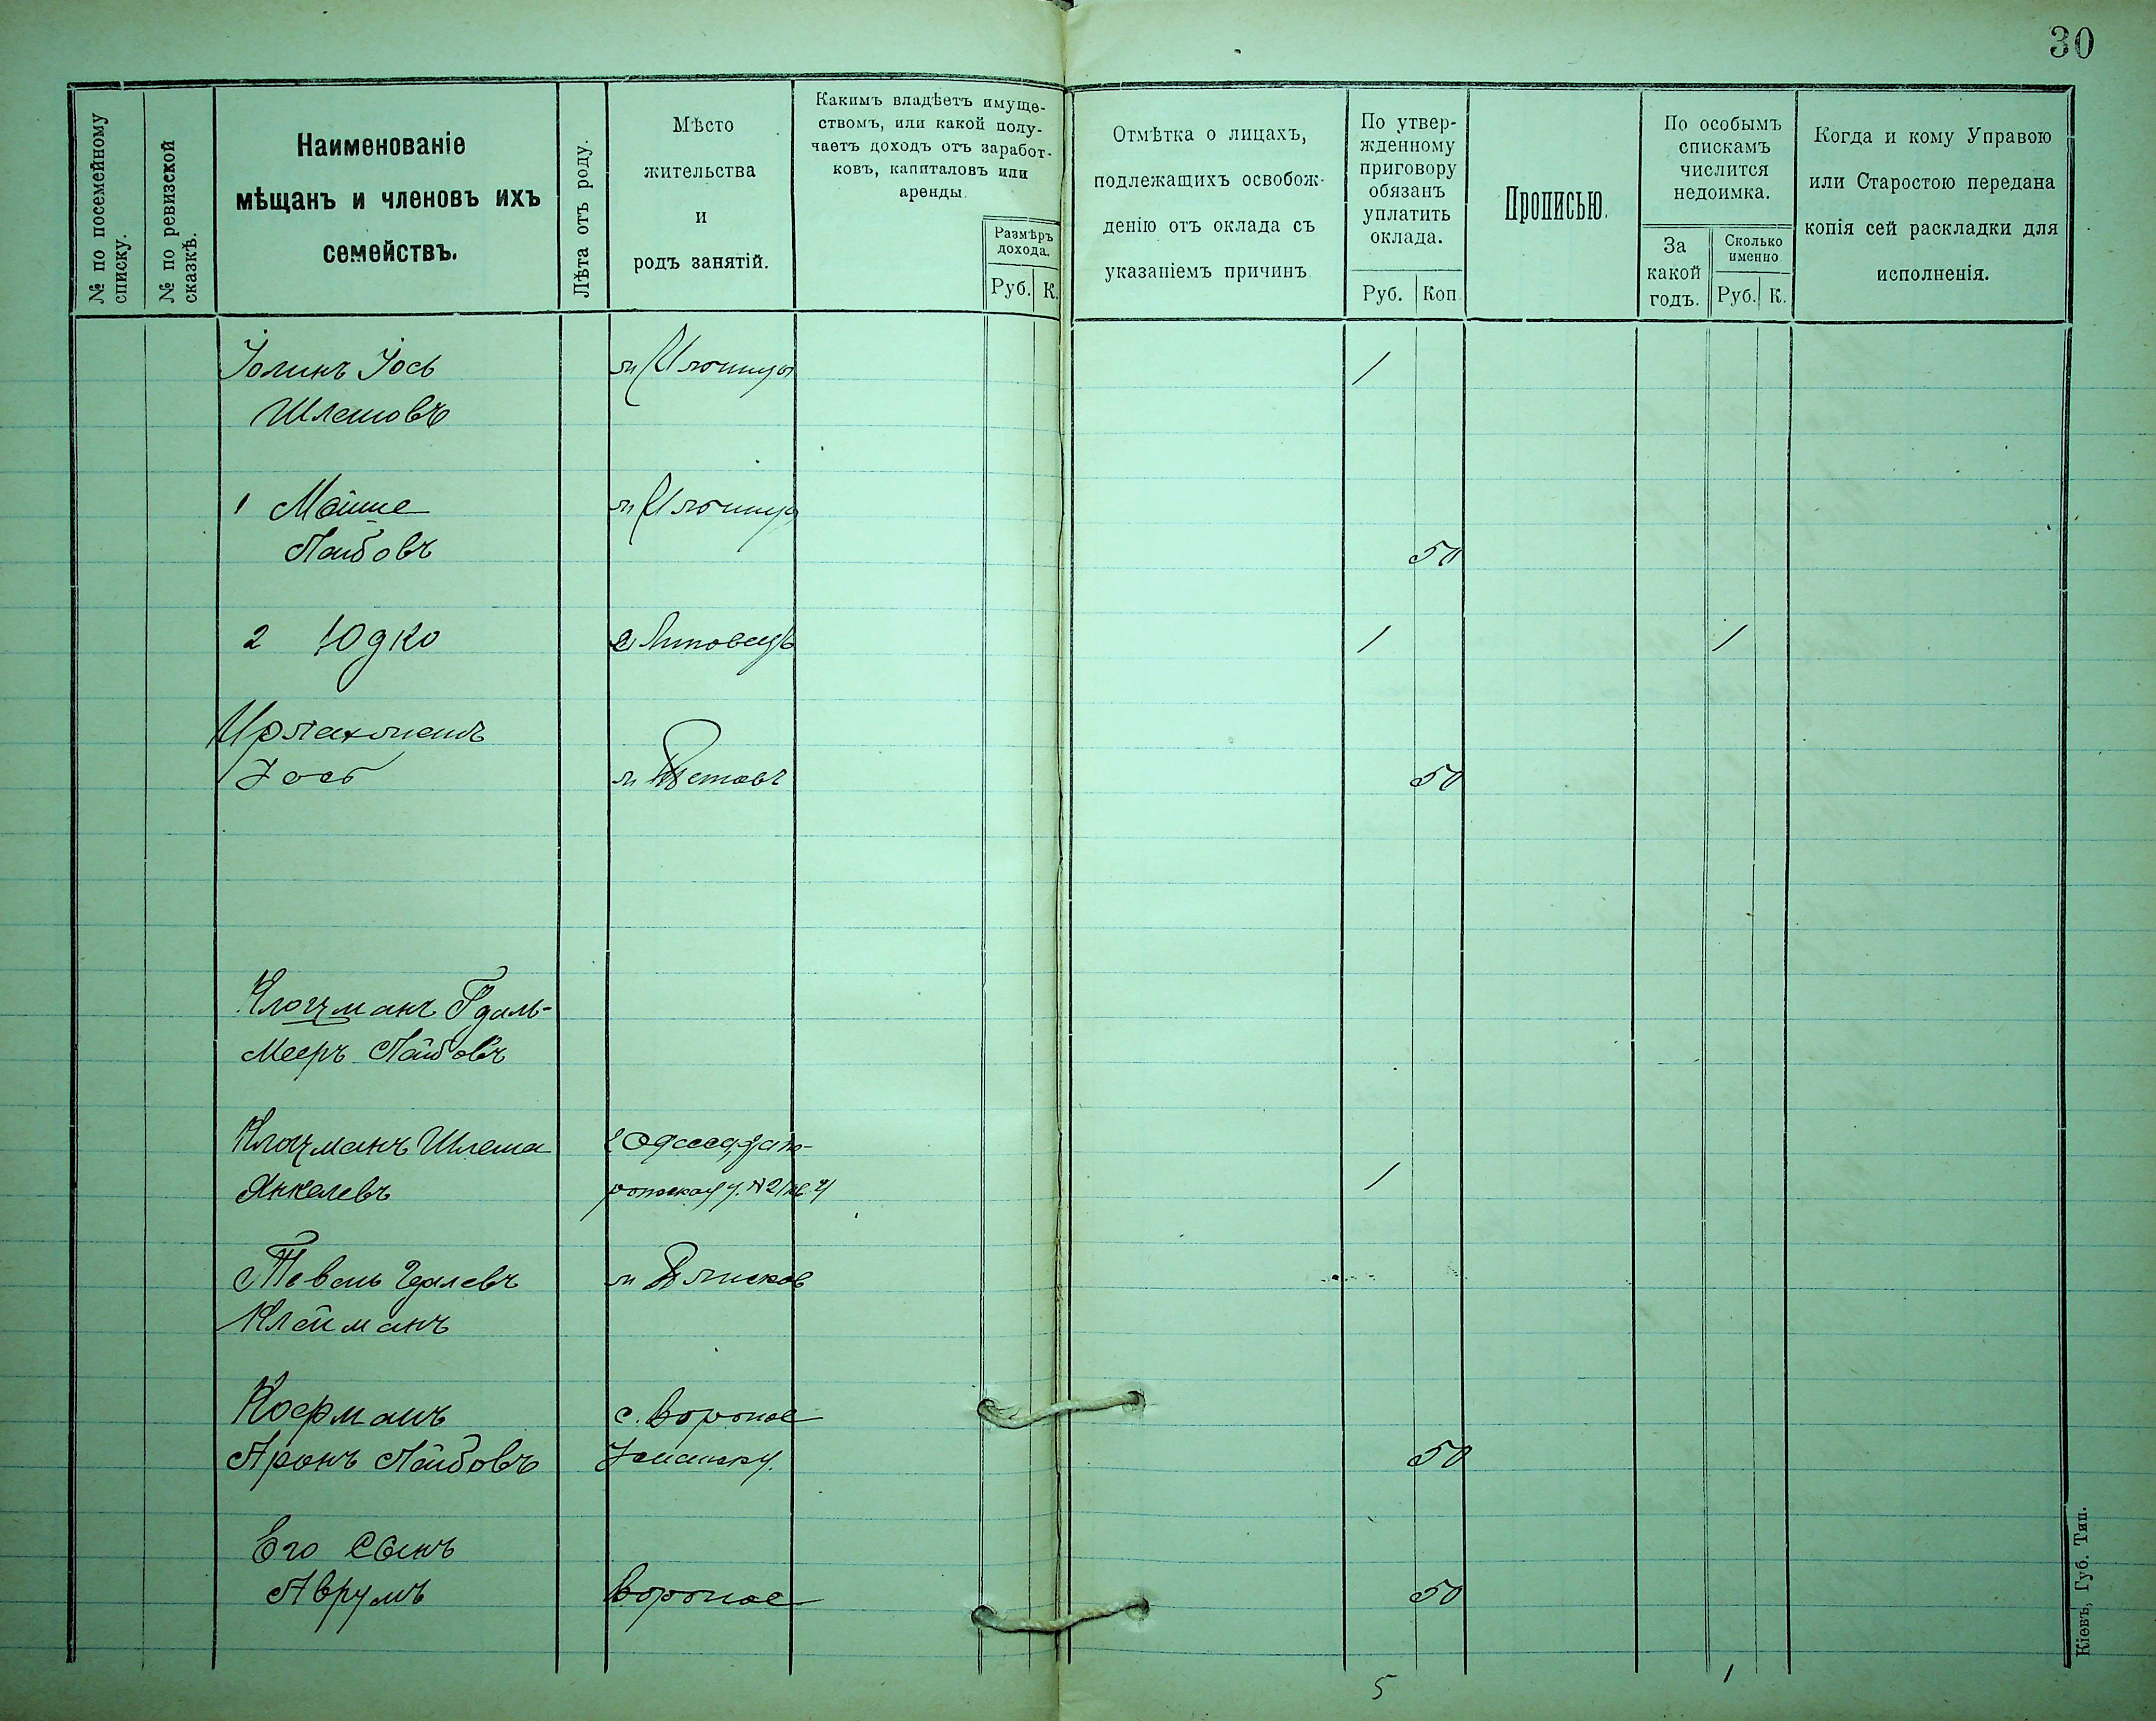 30
№ по посемейному списку.
№ по ревизской сказкѣ.
Наименованіе
мѣщанъ и членовъ ихъ
семействъ.
Лѣта отъ роду.
Мѣсто
жительства
и
родъ занятій.
Какимъ владѣетъ имуще-
ствомъ, или какой полу-
чаетъ доходъ отъ заработ-
ковъ, капиталовъ или
аренды.
Размѣръ
дохода.
Руб. К.
Отмѣтка о лицахъ,
подлежащихъ освобож-
денію отъ оклада съ
указаніемъ причинъ.
По утвер-
жденному
приговору
обязанъ
уплатить
оклада.
Руб. Коп.
Прописью.
По особымъ
спискамъ
числится
недоимка.
За
какой
годъ.
Сколько
именно
Руб. К.
Когда и кому Управою
или Старостою передана
копія сей раскладки для
исполненія.
Іось 1
Шлемовъ
1 Мойше
Лейбовъ 50
2 Юдко Липовецъ 1 1
Іось 50
Клоцманъ Гдаль-
Мееръ Лейбовъ
Клоцманъ Шлема
Янкелевъ 1
м
Клейманъ
Кофманъ с. Вороное
Аронъ Лейбовъ 50
Его сынъ
Аврумъ Вороное 50
5 1
Кіевъ, Губ. Тип.